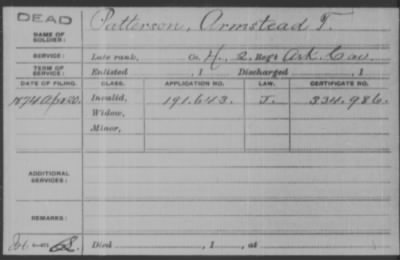 DEAD
NAME OF SOLDIER: Patterson, Armstead T.
SERVICE: Late rank, Co. H., 2. Reg't Ark. Cav.
TERM OF SERVICE: Enlisted , 1 Discharged , 1
DATE OF FILING. CLASS. APPLICATION NO. LAW. CERTIFICATE NO.
1874 Apr 20. Invalid, 191.643. J. 334.986.
Widow,
Minor,
ADDITIONAL SERVICES:
REMARKS:
Died , 1 , at